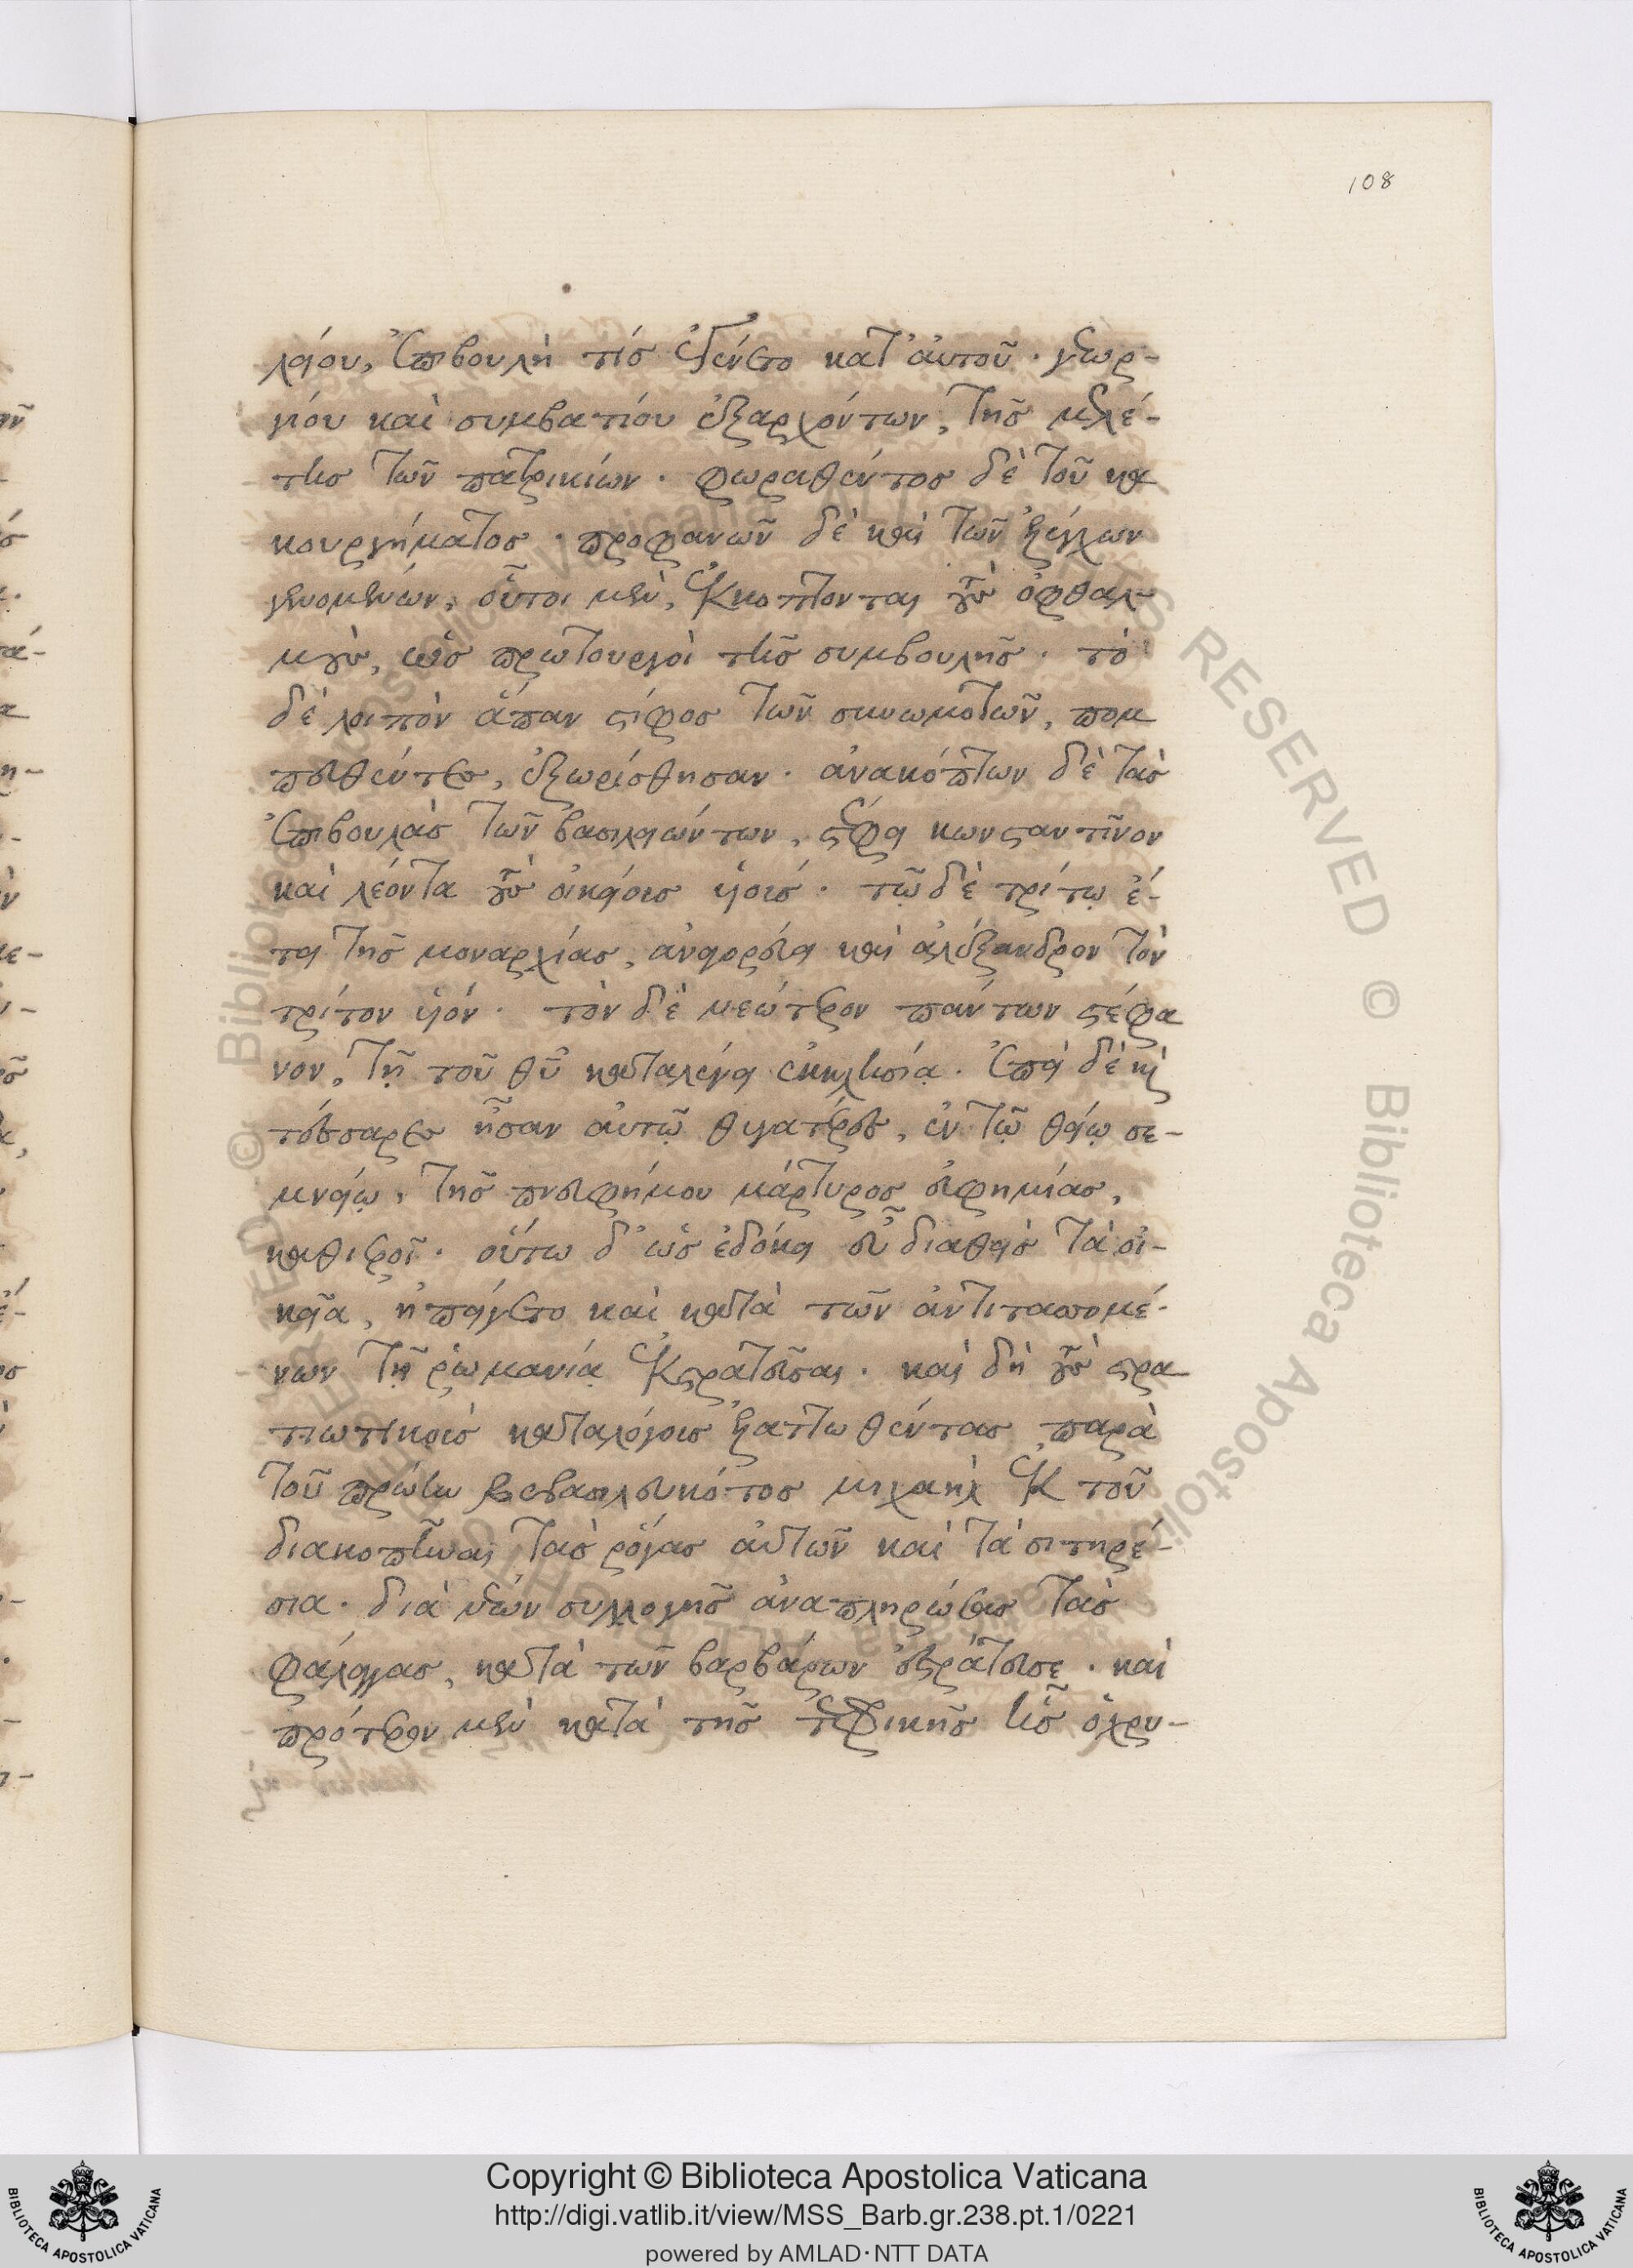 108
λείου, ἐπιβουλή τίς ἐγένετο κατ' αὐτοῦ. γεωρ-
γίου καὶ συμβατίου ἐξαρχόντων, τῆς μελέ-
της τῶν πατρικίων. φωραθέντος δὲ τοῦ κα
κουργήματος. προφανῶν δὲ καὶ τῶν ἐλέγχων
γενομένων, οὗτοι μὲν, ἐκκόπτονται τοὺς ὀφθαλ-
μοὺς, ὡς πρωτουργοὶ τῆς συμβουλῆς. τὸ
δὲ λοιπὸν ἅπαν στίφος τῶν συνωμοτῶν, πομ
πευθέντες, ἐξωρίσθησαν. ἀνακόπτων δὲ τὰς
ἐπιβουλὰς τῶν βασιλειώντων, στέφει κωνσταντῖνον
καὶ λέοντα τοὺς οἰκείοις υἱοῖς. τῷ δὲ τρίτῳ ἔ-
τει τῆς μοναρχίας, ἀναγορεύει καὶ ἀλέξανδρον τὸν
τρίτον υἱόν. τὸν δὲ νεώτερον πάντων στέφα
νον, τῇ τοῦ θυ καταλέγει ἐκκλησίᾳ. ἐπεὶ δὲ καὶ
τέσσαρες ἦσαν αὐτῷ θυγατέρες, ἐν τῷ θείῳ σε-
μνείῳ, τῆς πανευφήμου μάρτυρος εὐφημίας,
καθιεροῖ. οὕτω δ' ὡς ἐδόκει εὖ διαθεὶς τὰ οἰ-
κεῖα, ἠπείγετο καὶ κατὰ τῶν ἀντιταττομέ-
νων τῇ ῥωμανίᾳ ἐκστρατεῦσαι. καὶ δὴ τοὺς στρα
τιωτικοὺς καταλόγοις ἐλαττωθέντας παρὰ
τοῦ πρώην βεβασιλευκότος μιχαὴλ ἐκ τοῦ
διακοπῆναι τὰς ῥόγας αὐτῶν καὶ τὰ σιτηρέ-
σια. διὰ νέων συλλογῆς ἀναπληρώσας τὰς
φάλαγγας, κατὰ τῶν βαρβάρων ἐστράτευσε. καὶ
πρότερον μὲν κατὰ τῆς τεφρικῆς ἧς ὁ χρυ-
Copyright © Biblioteca Apostolica Vaticana
http://digi.vatlib.it/view/MSS_Barb.gr.238.pt.1/0221
powered by AMLAD·NTT DATA